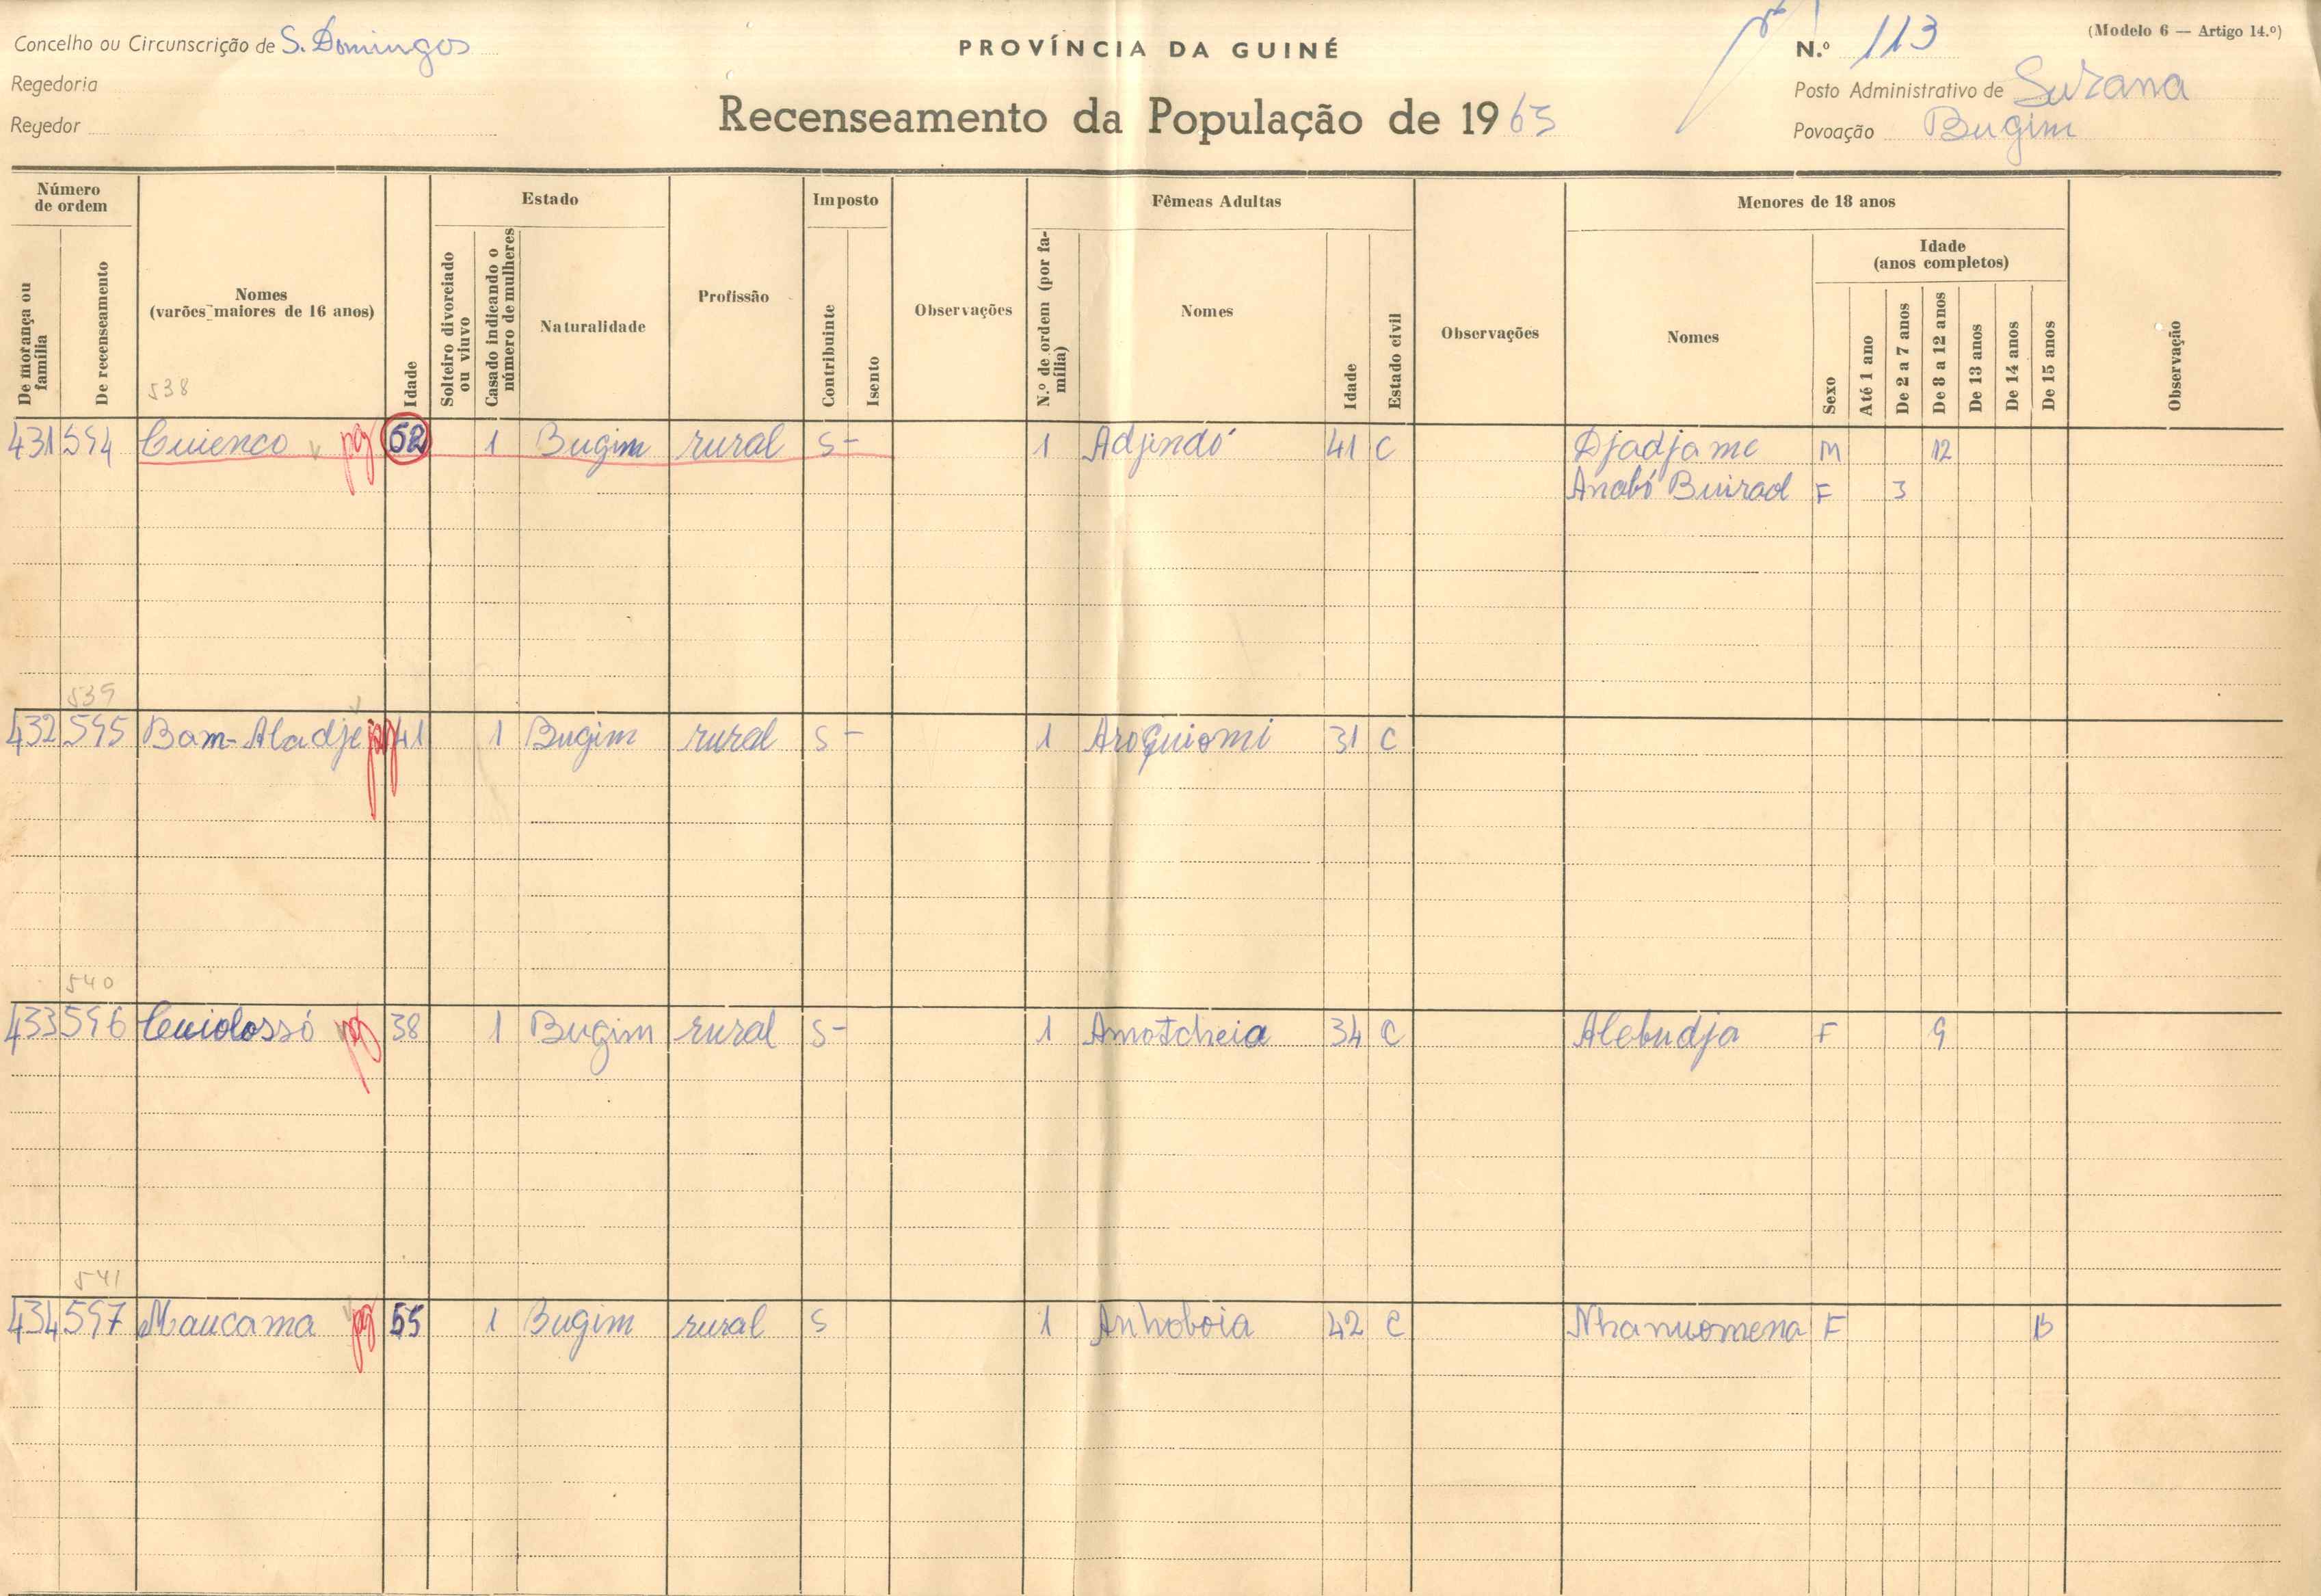 Concelho ou Circunscrição de S. Domingos
PROVÍNCIA DA GUINÉ
N.º 113
(Modelo 6 — Artigo 14.º)
Regedoria
Posto Administrativo de Suzana
Regedor
Recenseamento da População de 1963
Povoação Bugim
Número de ordem
De morança ou família
De recenseamento
Nomes (varões maiores de 16 anos)
538
Idade
Estado
Solteiro divorciado ou viuvo
Casado indicando o número de mulheres
Naturalidade
Profissão
Imposto
Contribuinte
Isento
Observações
Fêmeas Adultas
N.º de ordem (por família)
Nomes
Idade
Estado civil
Observações
Menores de 18 anos
Nomes
Sexo
Idade (anos completos)
Até 1 ano
De 2 a 7 anos
De 8 a 12 anos
De 13 anos
De 14 anos
De 15 anos
Observação
431 594 Cuienco pg 52 1 Bugim rural S - 1 Adjindó 41 C Djadjame M 12
Anabó Buirad F 3
539
432 595 Bam-Aladje pg 41 1 Bugim rural S - 1 Aroguiomi 31 C
540
433 596 Cuiolossó pg 38 1 Bugim rural S - 1 Amotcheia 34 C Alebudja F 9
541
434 597 Maucama pg 55 1 Bugim rural S 1 Anhoboia 42 C Nhanuomena F